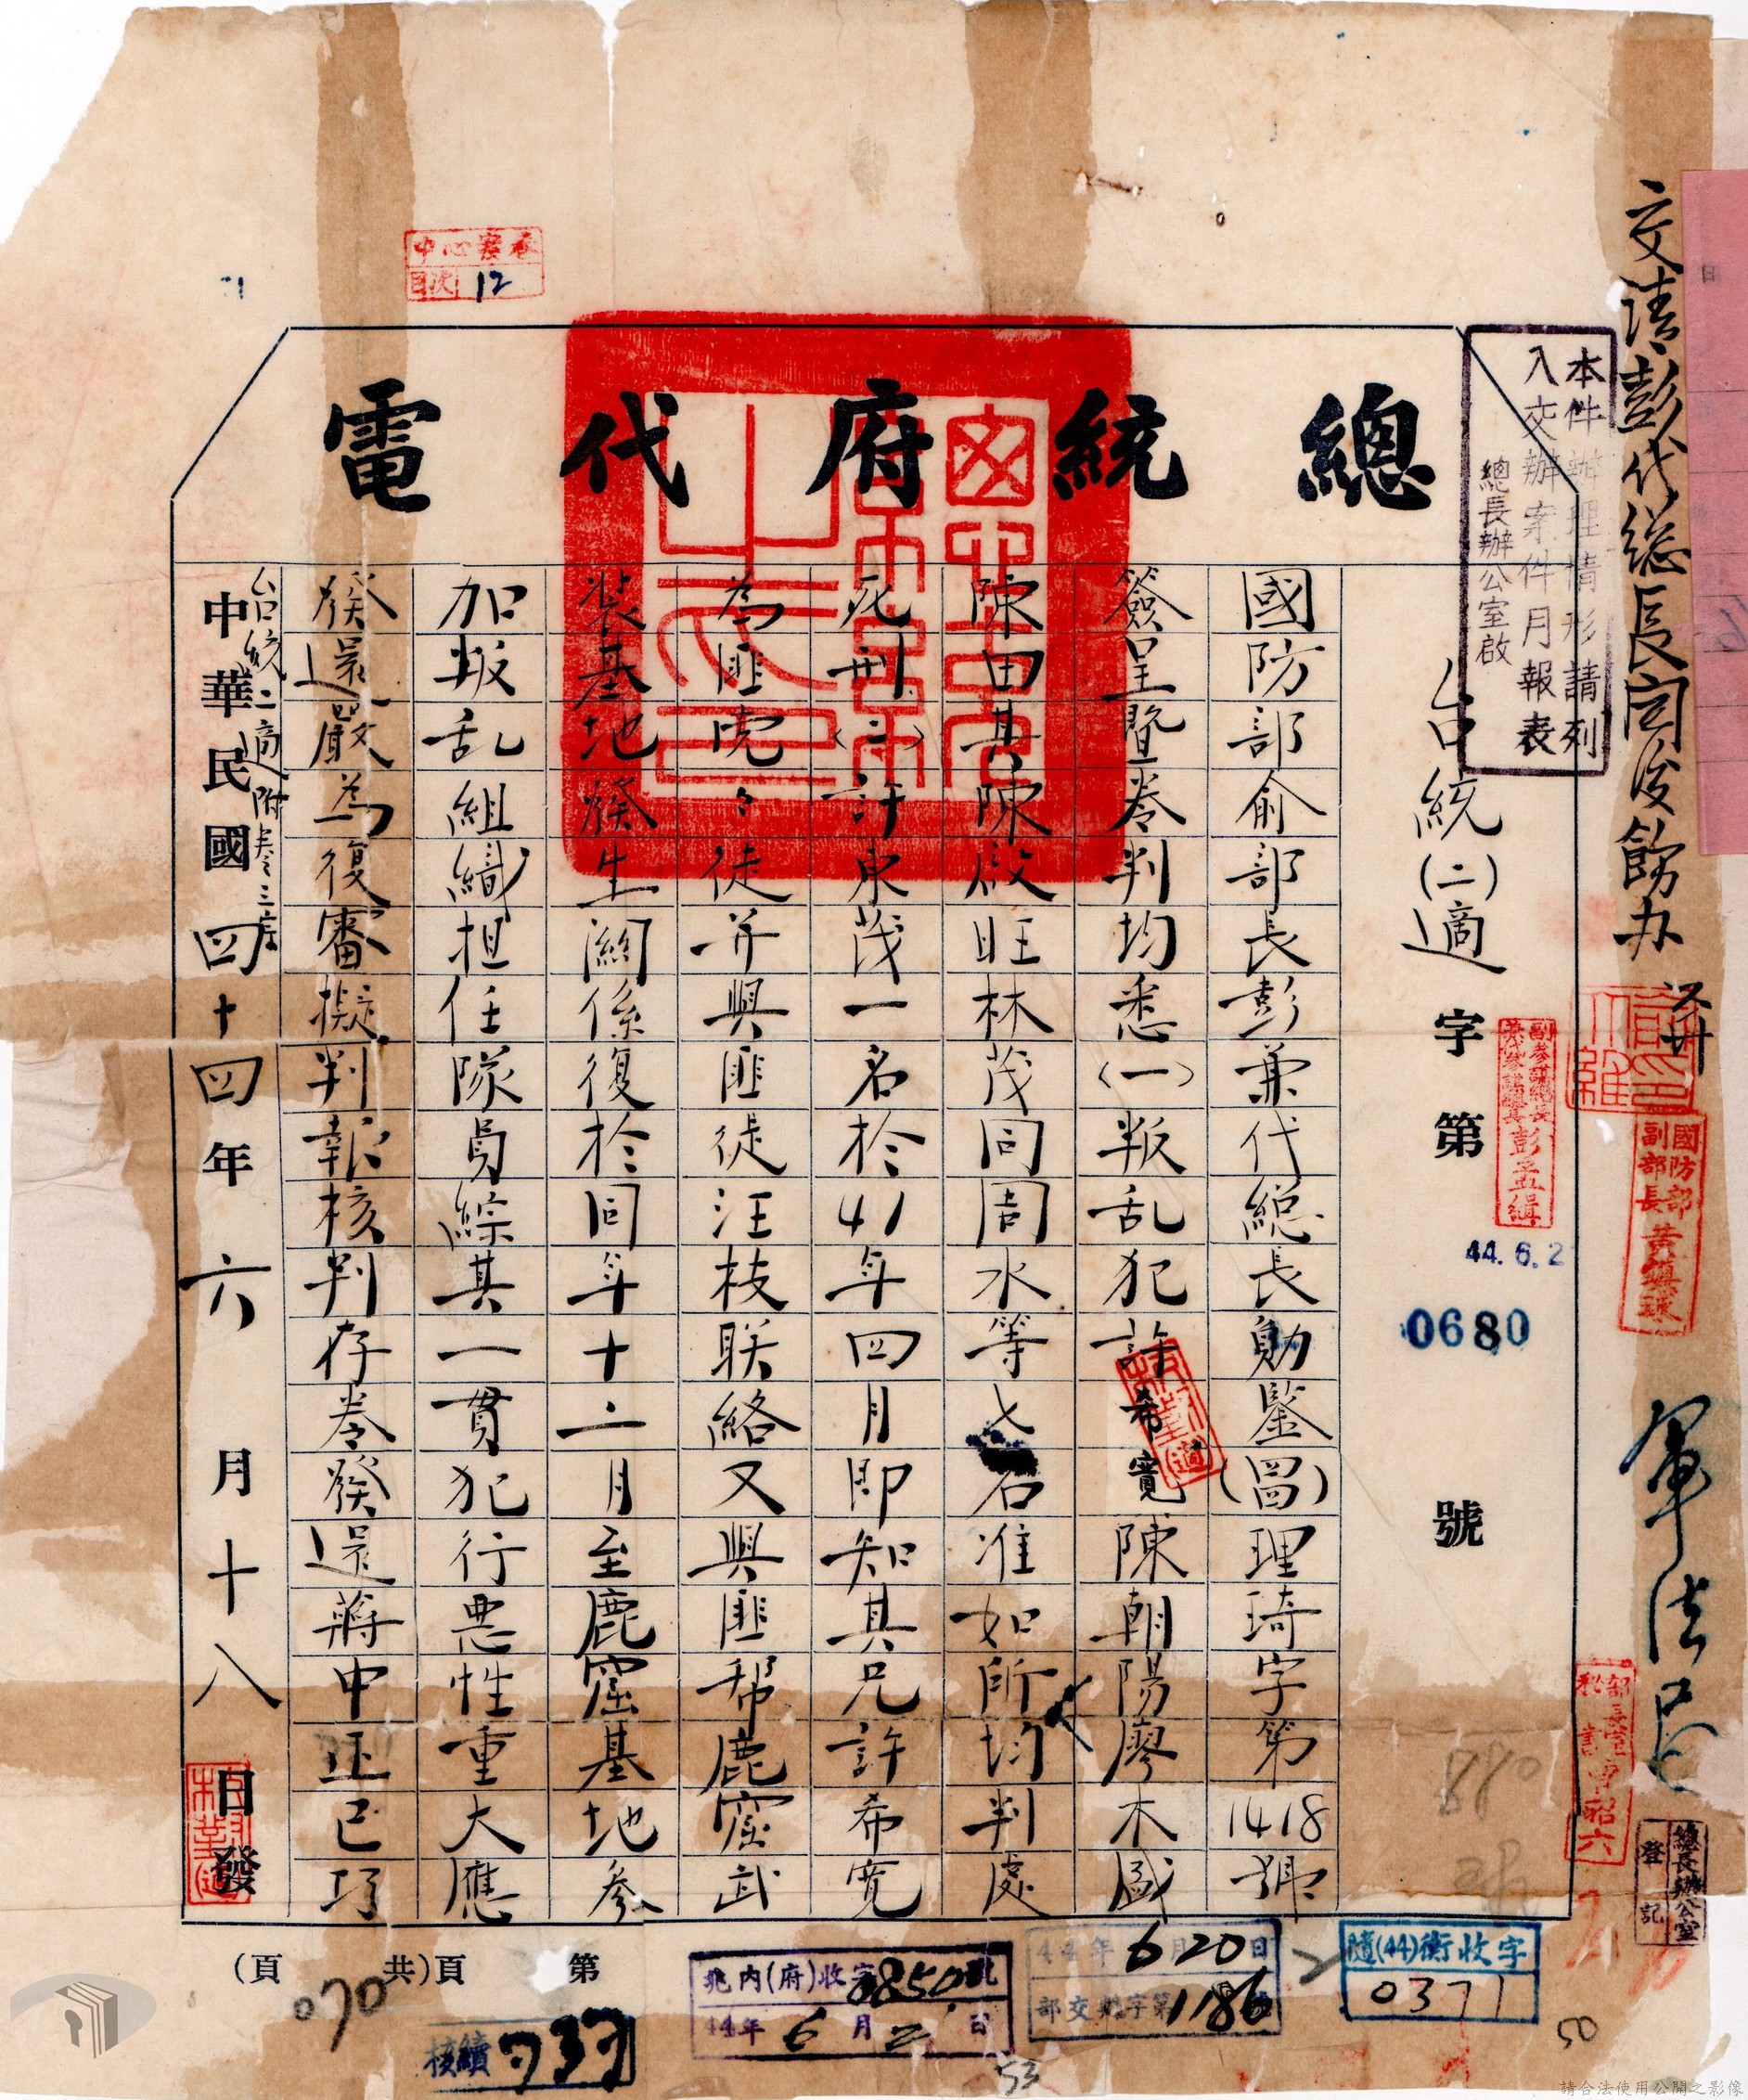 總統府代電
中心案卷
目次 12
交請彭代總長閱後飭办
軍法局
本件辦理情形請列
入交辦案件月報表
總長辦公室啟
台統(二)適字第0680號
國防部俞部長彭兼代總長勛鑒(圖)理琦字第1418號
簽呈暨卷判均悉(一)叛乱犯許希寬陳朝陽廖木盛
陳田其陳啟旺林茂同周水等七名准如所均判處
死刑(二)許東茂一名於41年四月即知其兄許希寬
為匪竟々徒并與匪徒汪枝联絡又與匪帮鹿窟武
裝基地發生關係復於同年十二月至鹿窟基地參
加叛乱組織担任隊員綜其一貫犯行惡性重大應
發還嚴為復審擬判報核判存卷發還蔣中正已巧
台統二適附卷三宗
中華民國四十四年六月十八日發
副參謀總長
兼代參謀總長彭孟緝
44.6.2
國防部
副部長黃鎮球
部長室
秘書曾昭六
總長辦公室
登記
880
(頁 共)頁 第
070
核續 733
兆內(府)收字8850號
44年6月2日
44年6月20日
部交 字第1186
隨(44)衡收字
0371
50
53
請合法使用公開之影像